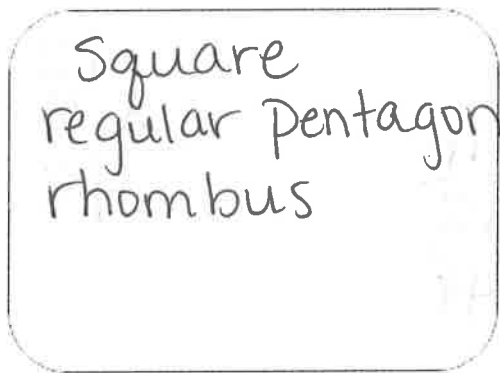 Square
regular pentagon
rhombus